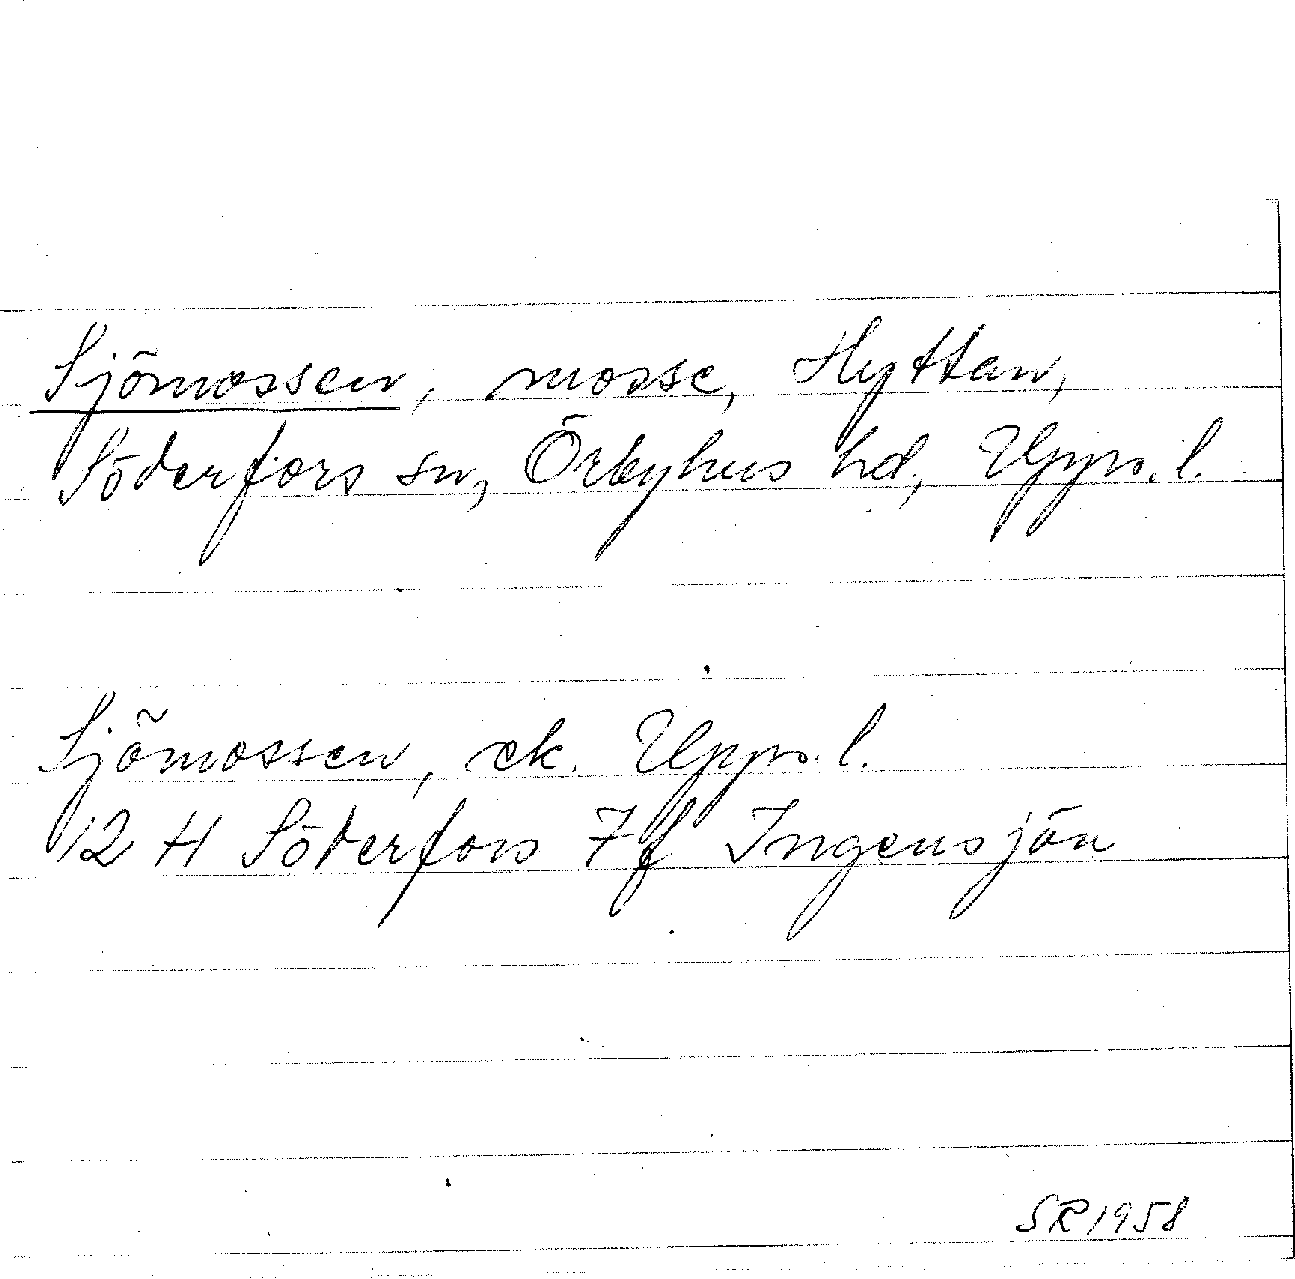 Sjömossen, mosse, Hyttan,
Söderfors sn, Örbyhus hd, Upps. l.
Sjömossen, ek. Upps. l.
12 H Söderfors 7 f Ingensjön
SR 1958